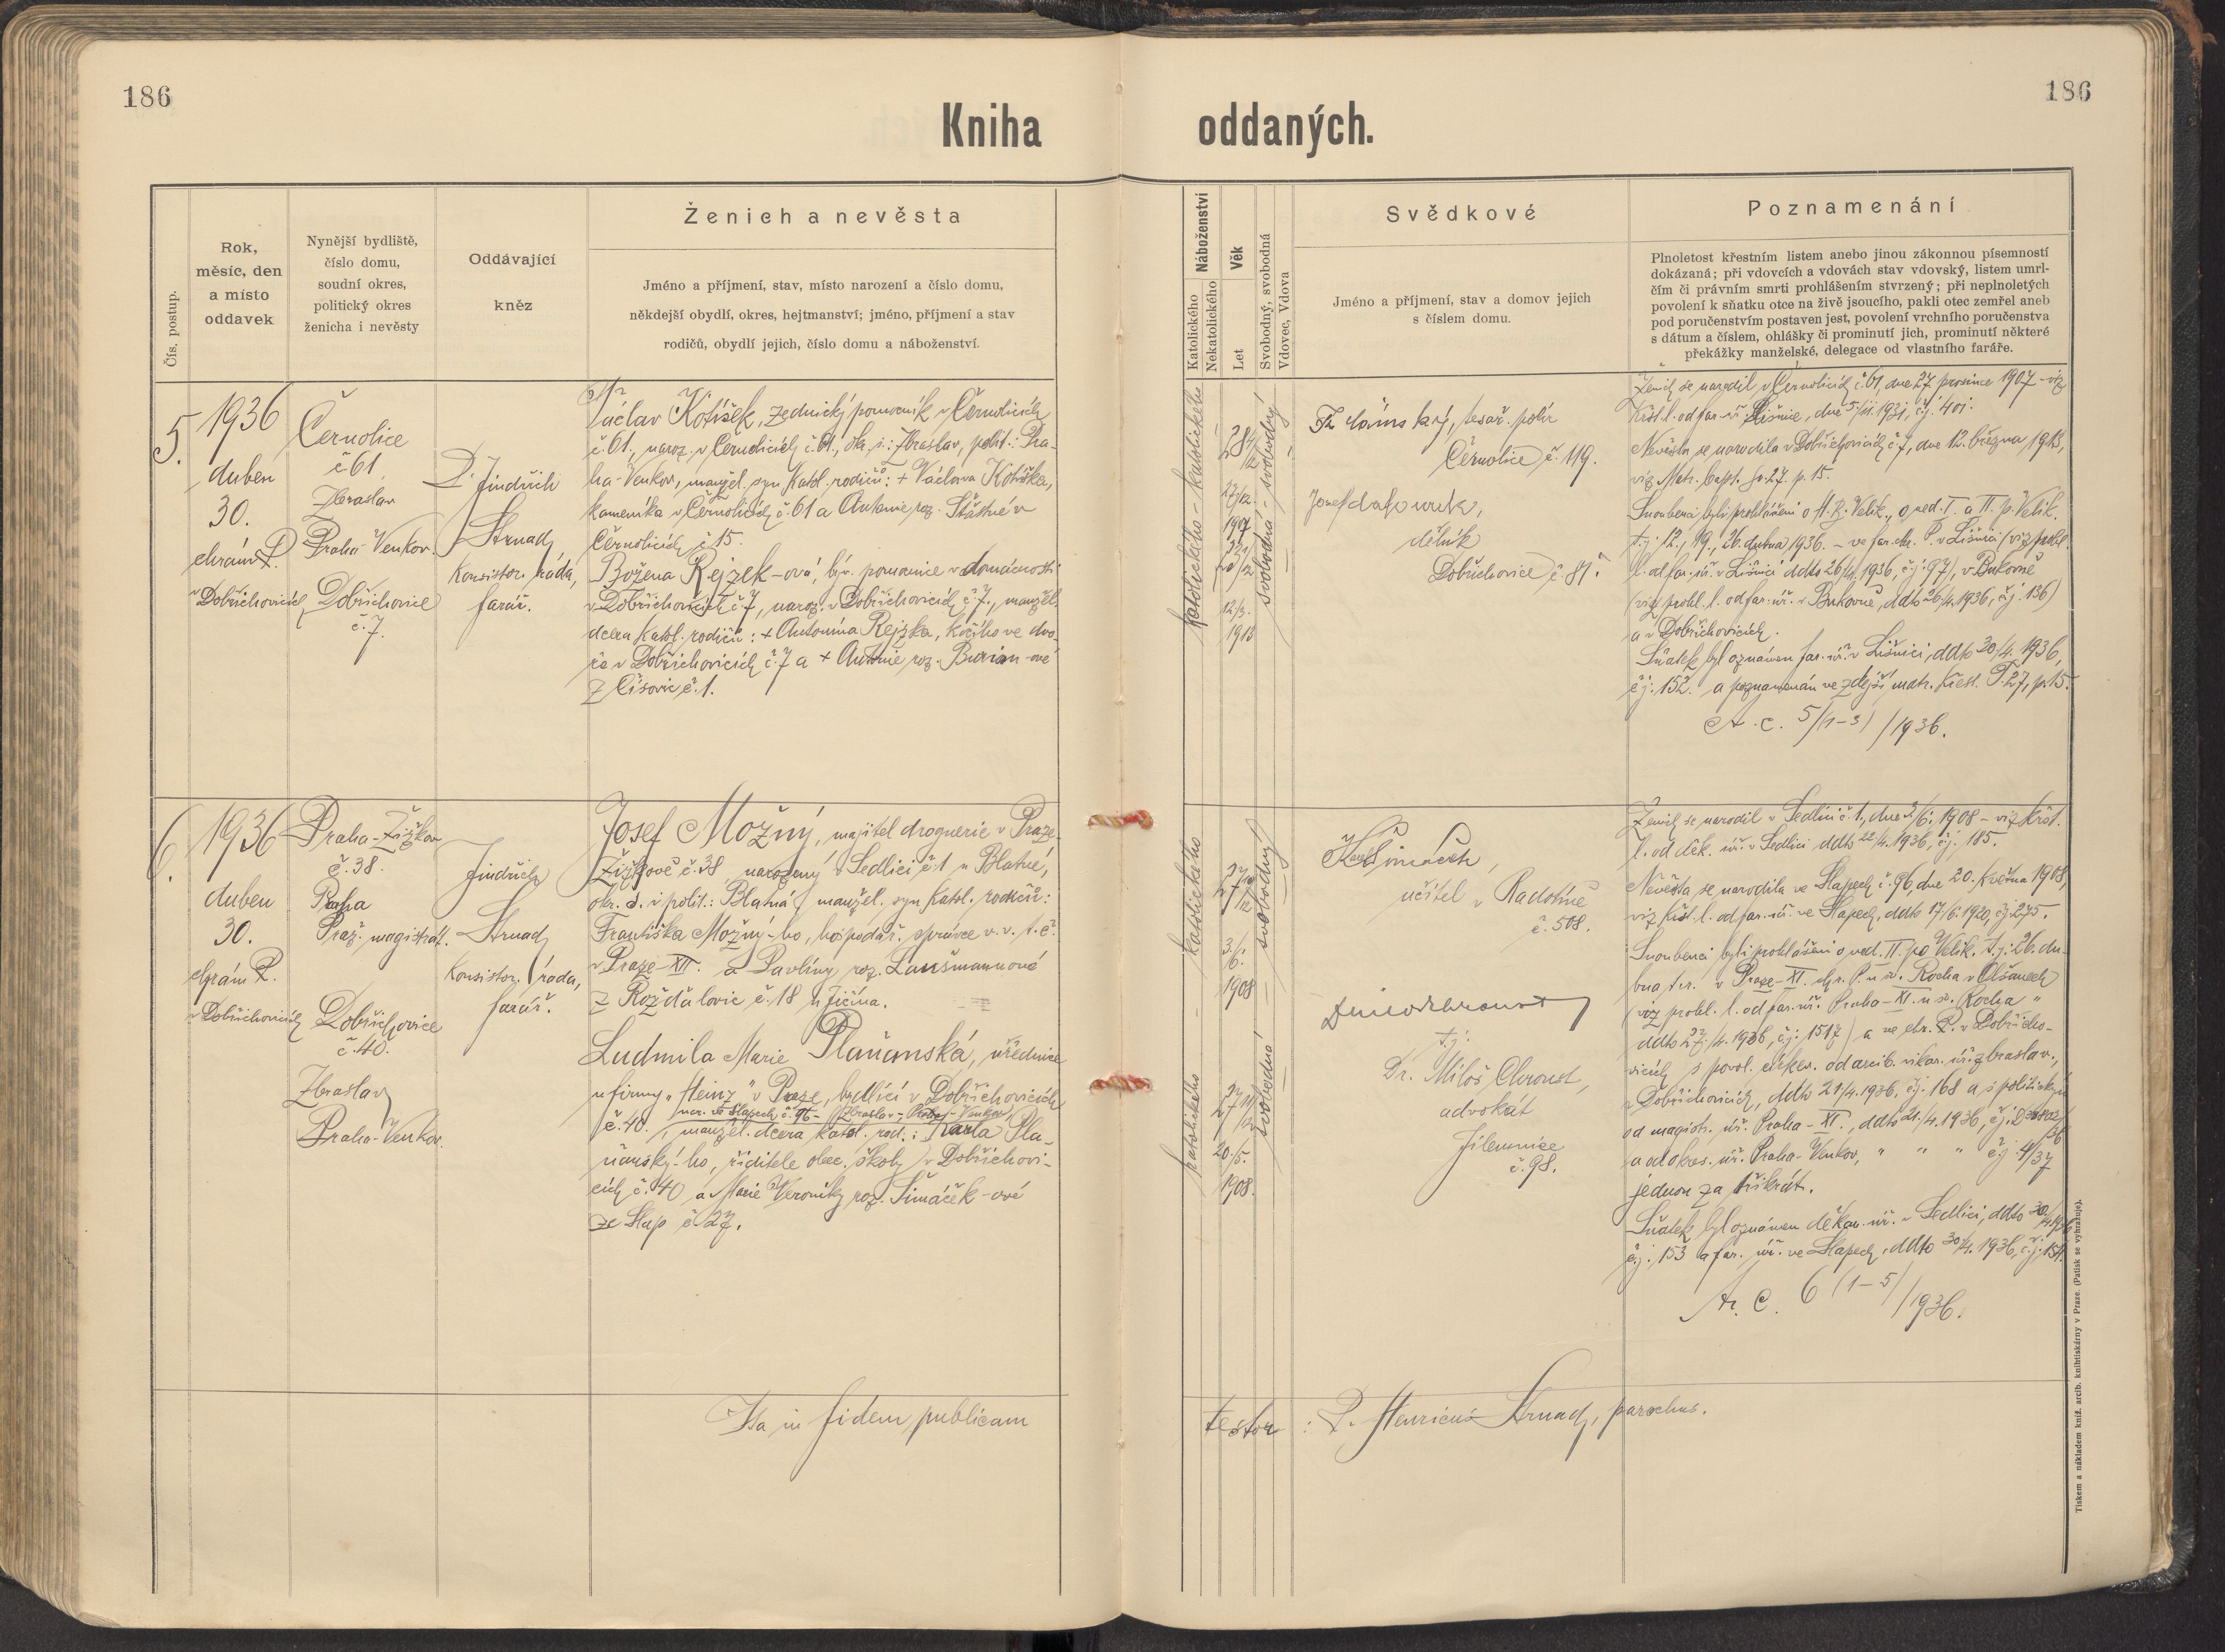 186
186
Kniha
oddaných.
Čís. postup.
Rok,
měsíc, den
a místo
oddavek
Nynější bydliště,
číslo domu,
soudní okres,
politický okres
ženicha i nevěsty
Oddávající
kněz
Ženich a nevěsta
Jméno a příjmení, stav, místo narození a číslo domu,
někdejší obydlí, okres, hejtmanství; jméno, příjmení a stav
rodičů, obydlí jejich, číslo domu a náboženství.
Náboženství
Katolického
Nekatolického
Věk
Let
Svobodný, svobodná
Vdovec, Vdova
Svědkové
Jméno a příjmení, stav a domov jejich
s číslem domu.
Poznamenání
Plnoletost křestním listem anebo jinou zákonnou písemností
dokázaná; při vdovcích a vdovách stav vdovský, listem umrl-
čím či právním smrti prohlášením stvrzený; při neplnoletých
povolení k sňatku otce na živě jsoucího, pakli otec zemřel aneb
pod poručenstvím postaven jest, povolení vrchního poručenstva
s dátum a číslem, ohlášky či prominutí jich, prominutí některé
překážky manželské, delegace od vlastního faráře.
5.
1936
duben
30.
chrám P.
v Dobřichovicích
Černolice
č 61
Zbraslav
Praha-Venkov.
Dobřichovice
č. 7.
P. Jindřich
Strnad,
Konsistor. rada,
farář.
Václav Kotíšek, zednický pomocník v Černolicích
č. 61, naroz. v Černolicích č. 61., okr. s.: Zbraslav, polit.: Pra-
ha-Venkov, manžel. syn katol. rodičů: + Václava Kotíška,
kameníka v Černolicích č. 61 a Antonie roz. Šťastné v
Černolicích č 15.
Božena Rejzek-ová, býv. pomocnice v domácnosti
v Dobřichovicích č 7, naroz. v Dobřichovicích č 7., manžel.
dcera katol. rodičů: + Antonína Rejzka, kočího ve dvo-
ře v Dobřichovicích č. 7 a + Antonie roz. Burian-ové
z Čísovic č. 1.
katolického - katolického
28
27/12.
1907
12/3.
1913
svobodná - svobodný
tesař. polír
Černolice č. 119.
Josef
dělník
Dobřichovice č. 81.
Ženich se narodil v Černolicích č 61, dne 27. prosince 1907 - viz
Nevěsta se narodila v Dobřichovicích č 7, dne 12. března 1913,
viz Matr. bapt. fo 27. p. 15.
Snoubenci byli prohlášeni o H. B. Velik., o ned. I. a II. p. Velik.
t. j. 12., 19., 26. dubna 1936. - ve far. chr. P. v Líšnici (viz prohl.
l. od far. úř. v Líšnici ddto 26/4. 1936, č. j. 97), v Bukovně
(viz prohl. l. od far. úř. v Bukovně, ddto 26/4. 1936, č. j. 136)
a v Dobřichovicích.
Sňatek byl oznámen far. úř. v Líšnici, ddto 30/4. 1936,
č j. 152. a poznamenán ve zdejší matr. křest. T. 27, p. 15.
A. c. 5/(1-3)/1936.
6.
1936
duben
30.
chrám P.
v Dobřichovicích
Praha-Žižkov
č. 38.
Praha
Praž. magistrát.
Dobřichovice
č. 40.
Zbraslav
Praha-Venkov.
Jindřich
Strnad,
Konsistor. rada,
farář.
Josef Možný, majitel droguerie v Praze-
Žižkově č. 38 narozený v Sedlici č. 1 u Blatné,
okr. s. i polit.: Blatná, manžel. syn katol. rodičů:
Františka Možný-ho, hospodář. správce v. v. t. č.
v Praze-XII. a Pavlíny roz. Laušmannové
z Rožďalovic č. 18 u Jičína.
Ludmila Marie Plaňanská, úřednice
u firmy „Heinz" v Praze, bydlící v Dobřichovicích
nar. ve Slapech č. 96 - Zbraslav - Praha-Venkov
č. 40., manžel. dcera katol. rod.: Karla Pla-
ňanský-ho, řiditele obec. školy v Dobřichovi-
cích č. 40 a Marie Veroniky roz. Šimáček-ové
ze Slap č 27.
katolického - katolického
27
3/6.
1908
27
20/5.
1908.
svobodná svobodný
Karel Šimáček,
učitel v Radotíně
č. 508.
t. j.
Dr. Miloš Chroust,
advokát
Jilemnice
č. 98.
Ženich se narodil v Sedlici č 1, dne 3/6. 1908 - viz křst.
l. od děk. úř. v Sedlici ddto 22/4. 1936, č j. 185.
Nevěsta se narodila ve Slapech č. 96, dne 20. května 1908,
viz křst. l. od far. úř. ve Slapech, ddto 17/6. 1920, č j. 275.
Snoubenci byli prohlášeni o ned. II. po Velik. t. j. 26. du-
bna t. r. v Praze-XI. chr. P. u sv. Rocha v Olšanech
(viz prohl. l. od far. úř. Praha-XI. u sv. Rocha"
ddto 27./4. 1936, č j. 1517) a ve chr. P. v Dobřicho-
vicích s povol. církev. od arcib. vikar. úř. zbraslav.,
v Dobřichovicích, ddto 21/4. 1936, č j. 168 a s politickým
od magistr. úř. Praha-XI., ddto 21/4. 1936,
a od okres. úř. Praha-Venkov, " " " č j 4/37
jednou za třikrát.
Sňatek byl oznámen děkan. úř. v Sedlici, ddto 30/4. 1936
č. j. 153 a far. úř. ve Slapech, ddto 30/4. 1936, č. j. 154.
A. c. 6 (1-5)/1936.
Ita in fidem publicam
testor : P. Henricus Strnad, parochus.
Tiskem a nákladem kníž. arcib. knihtiskárny v Praze. (Patisk se vyhražuje).